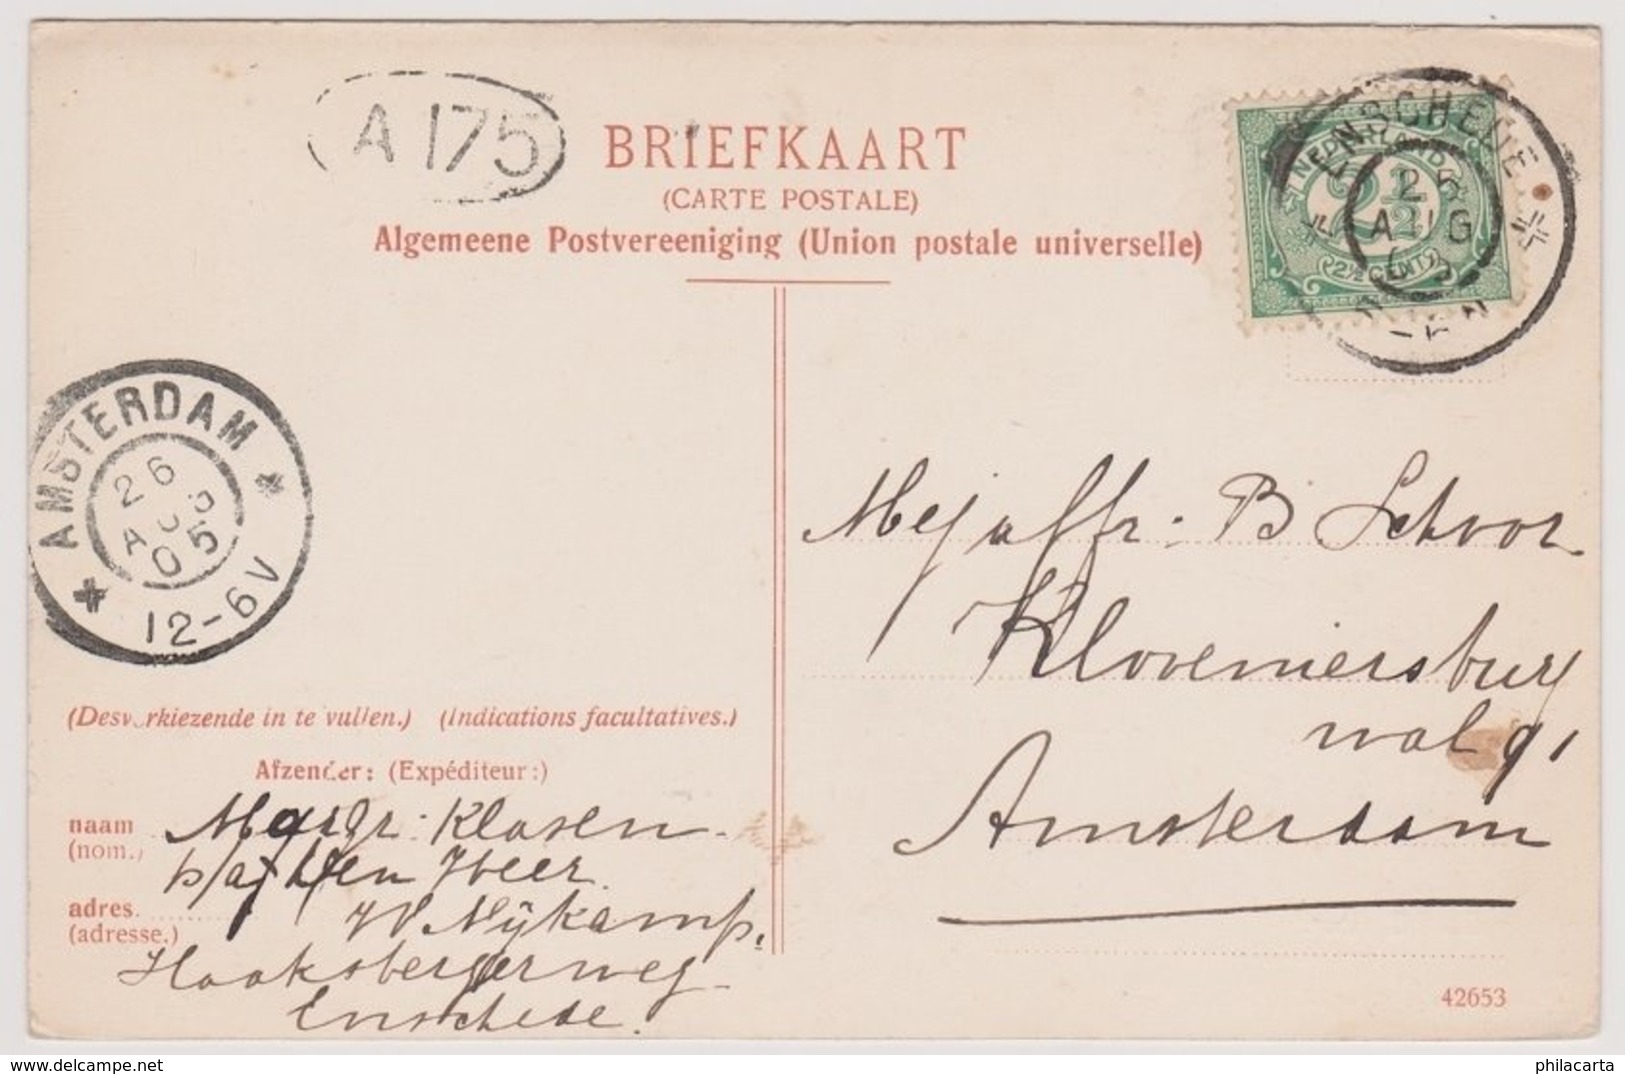 A 175
BRIEFKAART
(CARTE POSTALE)
Algemeene Postvereeniging (Union postale universelle)
ENSCHEDE
25
AUG
NEDERLAND
2½
2½ CENT
AMSTERDAM
26
AUG
05
12-6V
Mejuffr: B Schoor
Kloveniersburg
wal 91
Amsterdam
(Desverkiezende in te vullen.) (Indications facultatives.)
Afzender: (Expéditeur:)
naam Margr: Klasen
(nom.)
p/a den Heer
adres. W Nijkamp.
(adresse.)
Haaksbergerweg
Enschede.
42653
http://www.delcampe.net
philacarta